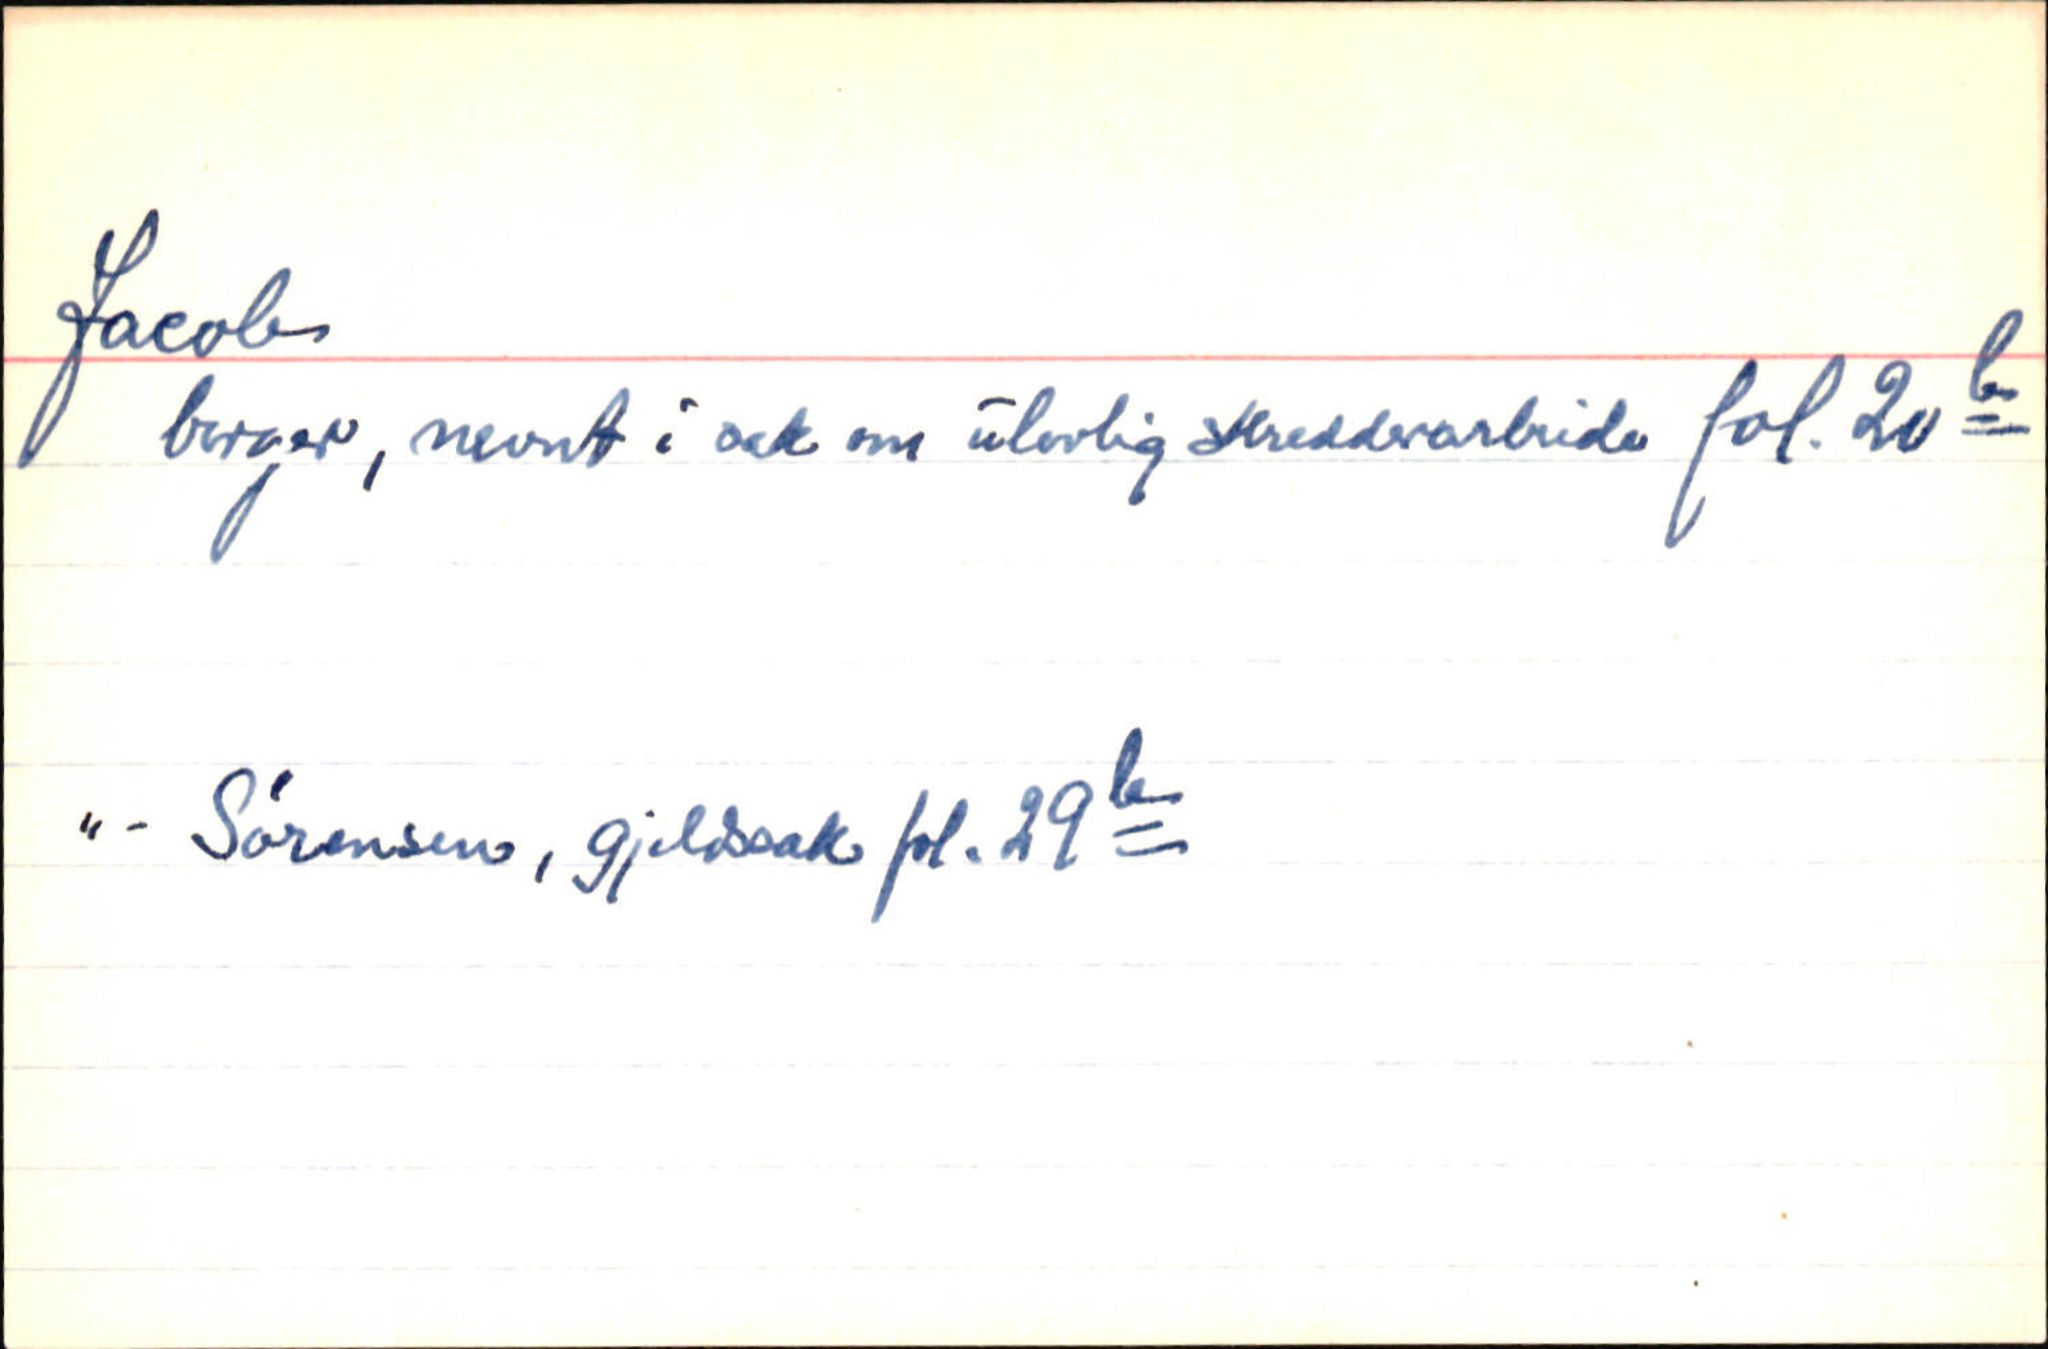 Jacob
borger, nevnt i sak om ulovlig skredderarbeide fol. 20 b
"- Sörensen, gjeldssak fol. 29 b